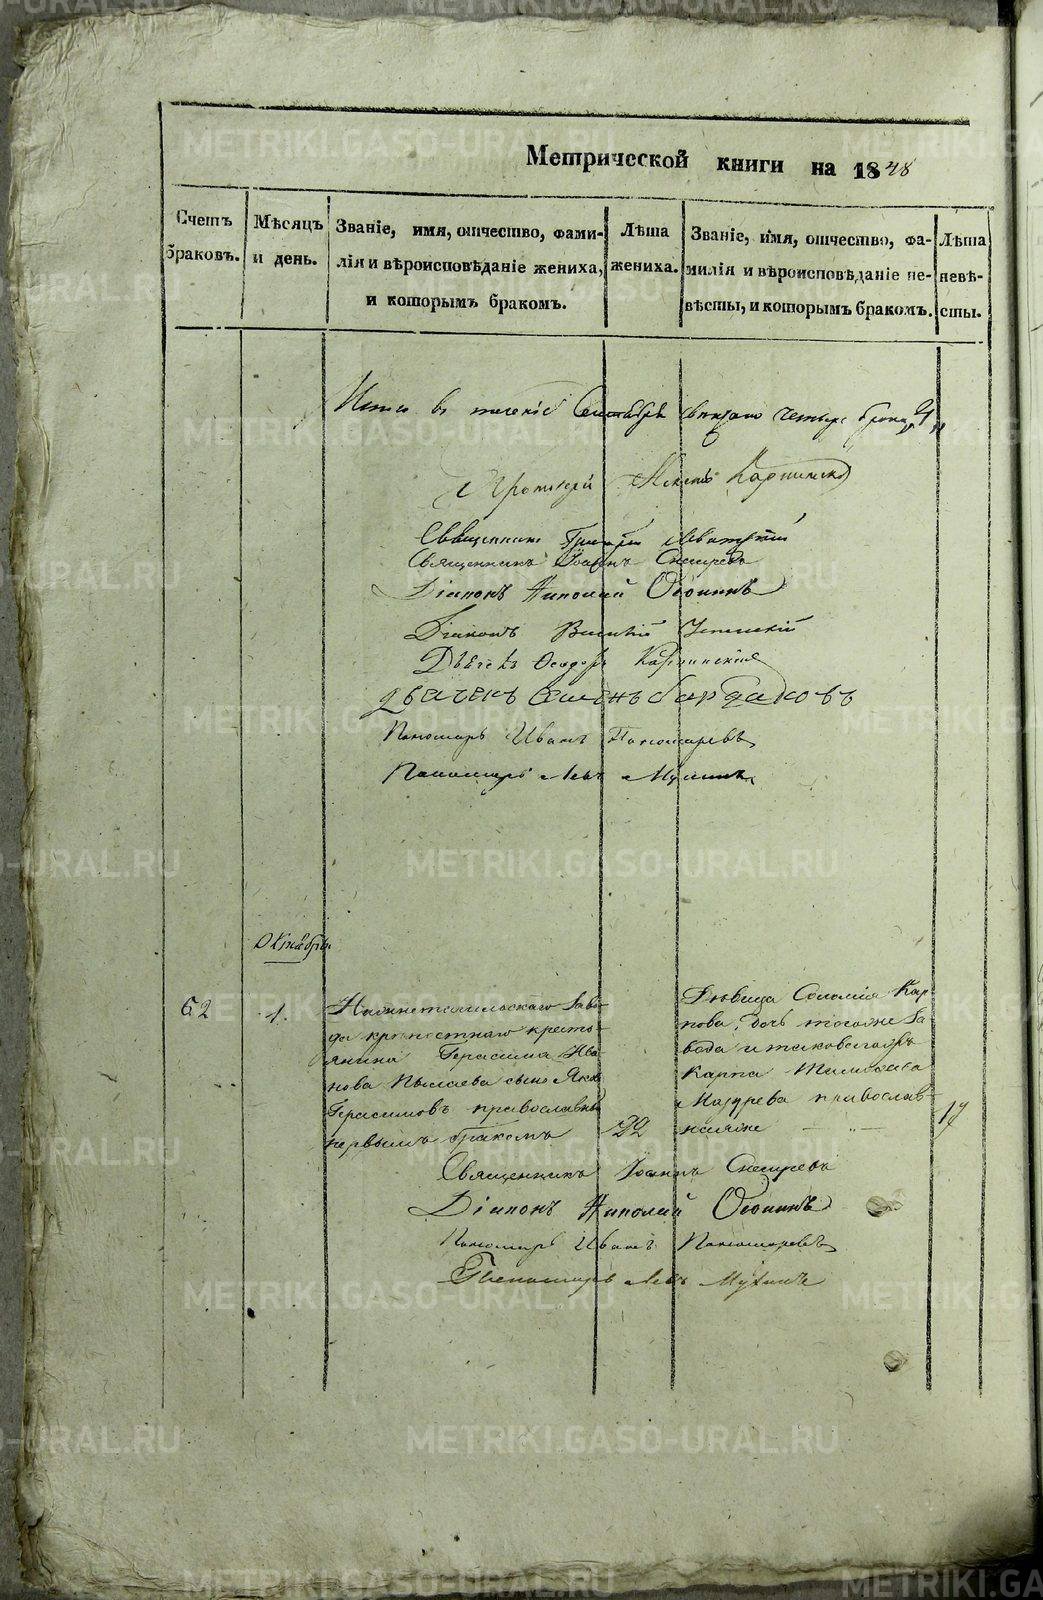 Метрической книги на 1848
Счетъ браковъ.
Мѣсяцъ и день.
Званіе, имя, отчество, фами-
лія и вѣроисповѣданіе жениха,
и которымъ бракомъ.
Лѣта
жениха.
Званіе, имя, отчество, фа-
милія и вѣроисповѣданіе не-
вѣсты, и которымъ бракомъ.
Лѣта
невѣ-
сты.
Итого в течение Сентября четыре брака 4
Протоіерей Карпинскій
Священникъ Григорій
Священникъ Іоаннъ Снегиревъ
Діаконъ Николай
Діаконъ Василій Успенскій
Дьячекъ Ѳеодоръ Карпинскій
Дьячекъ Семенъ Бардаковъ
Пономарь Иванъ Пономаревъ
Пономарь Левъ Мухинъ
Октябрь
62
1.
Нижнетагильскаго Заво-
да крѣпостнаго кресть-
янина Герасима Ива-
нова сынъ Яковъ
Герасимовъ православный
первымъ бракомъ
22
Дѣвица Соломія Кар-
пова, дочь тогоже За-
вода и таковагожъ
Карпа
православ-
ная же
19
Священникъ Іоаннъ Снегиревъ
Діаконъ Николай
Пономарь Иванъ Пономаревъ
Пономарь Левъ Мухинъ
METRIKI.GASO-URAL.RU